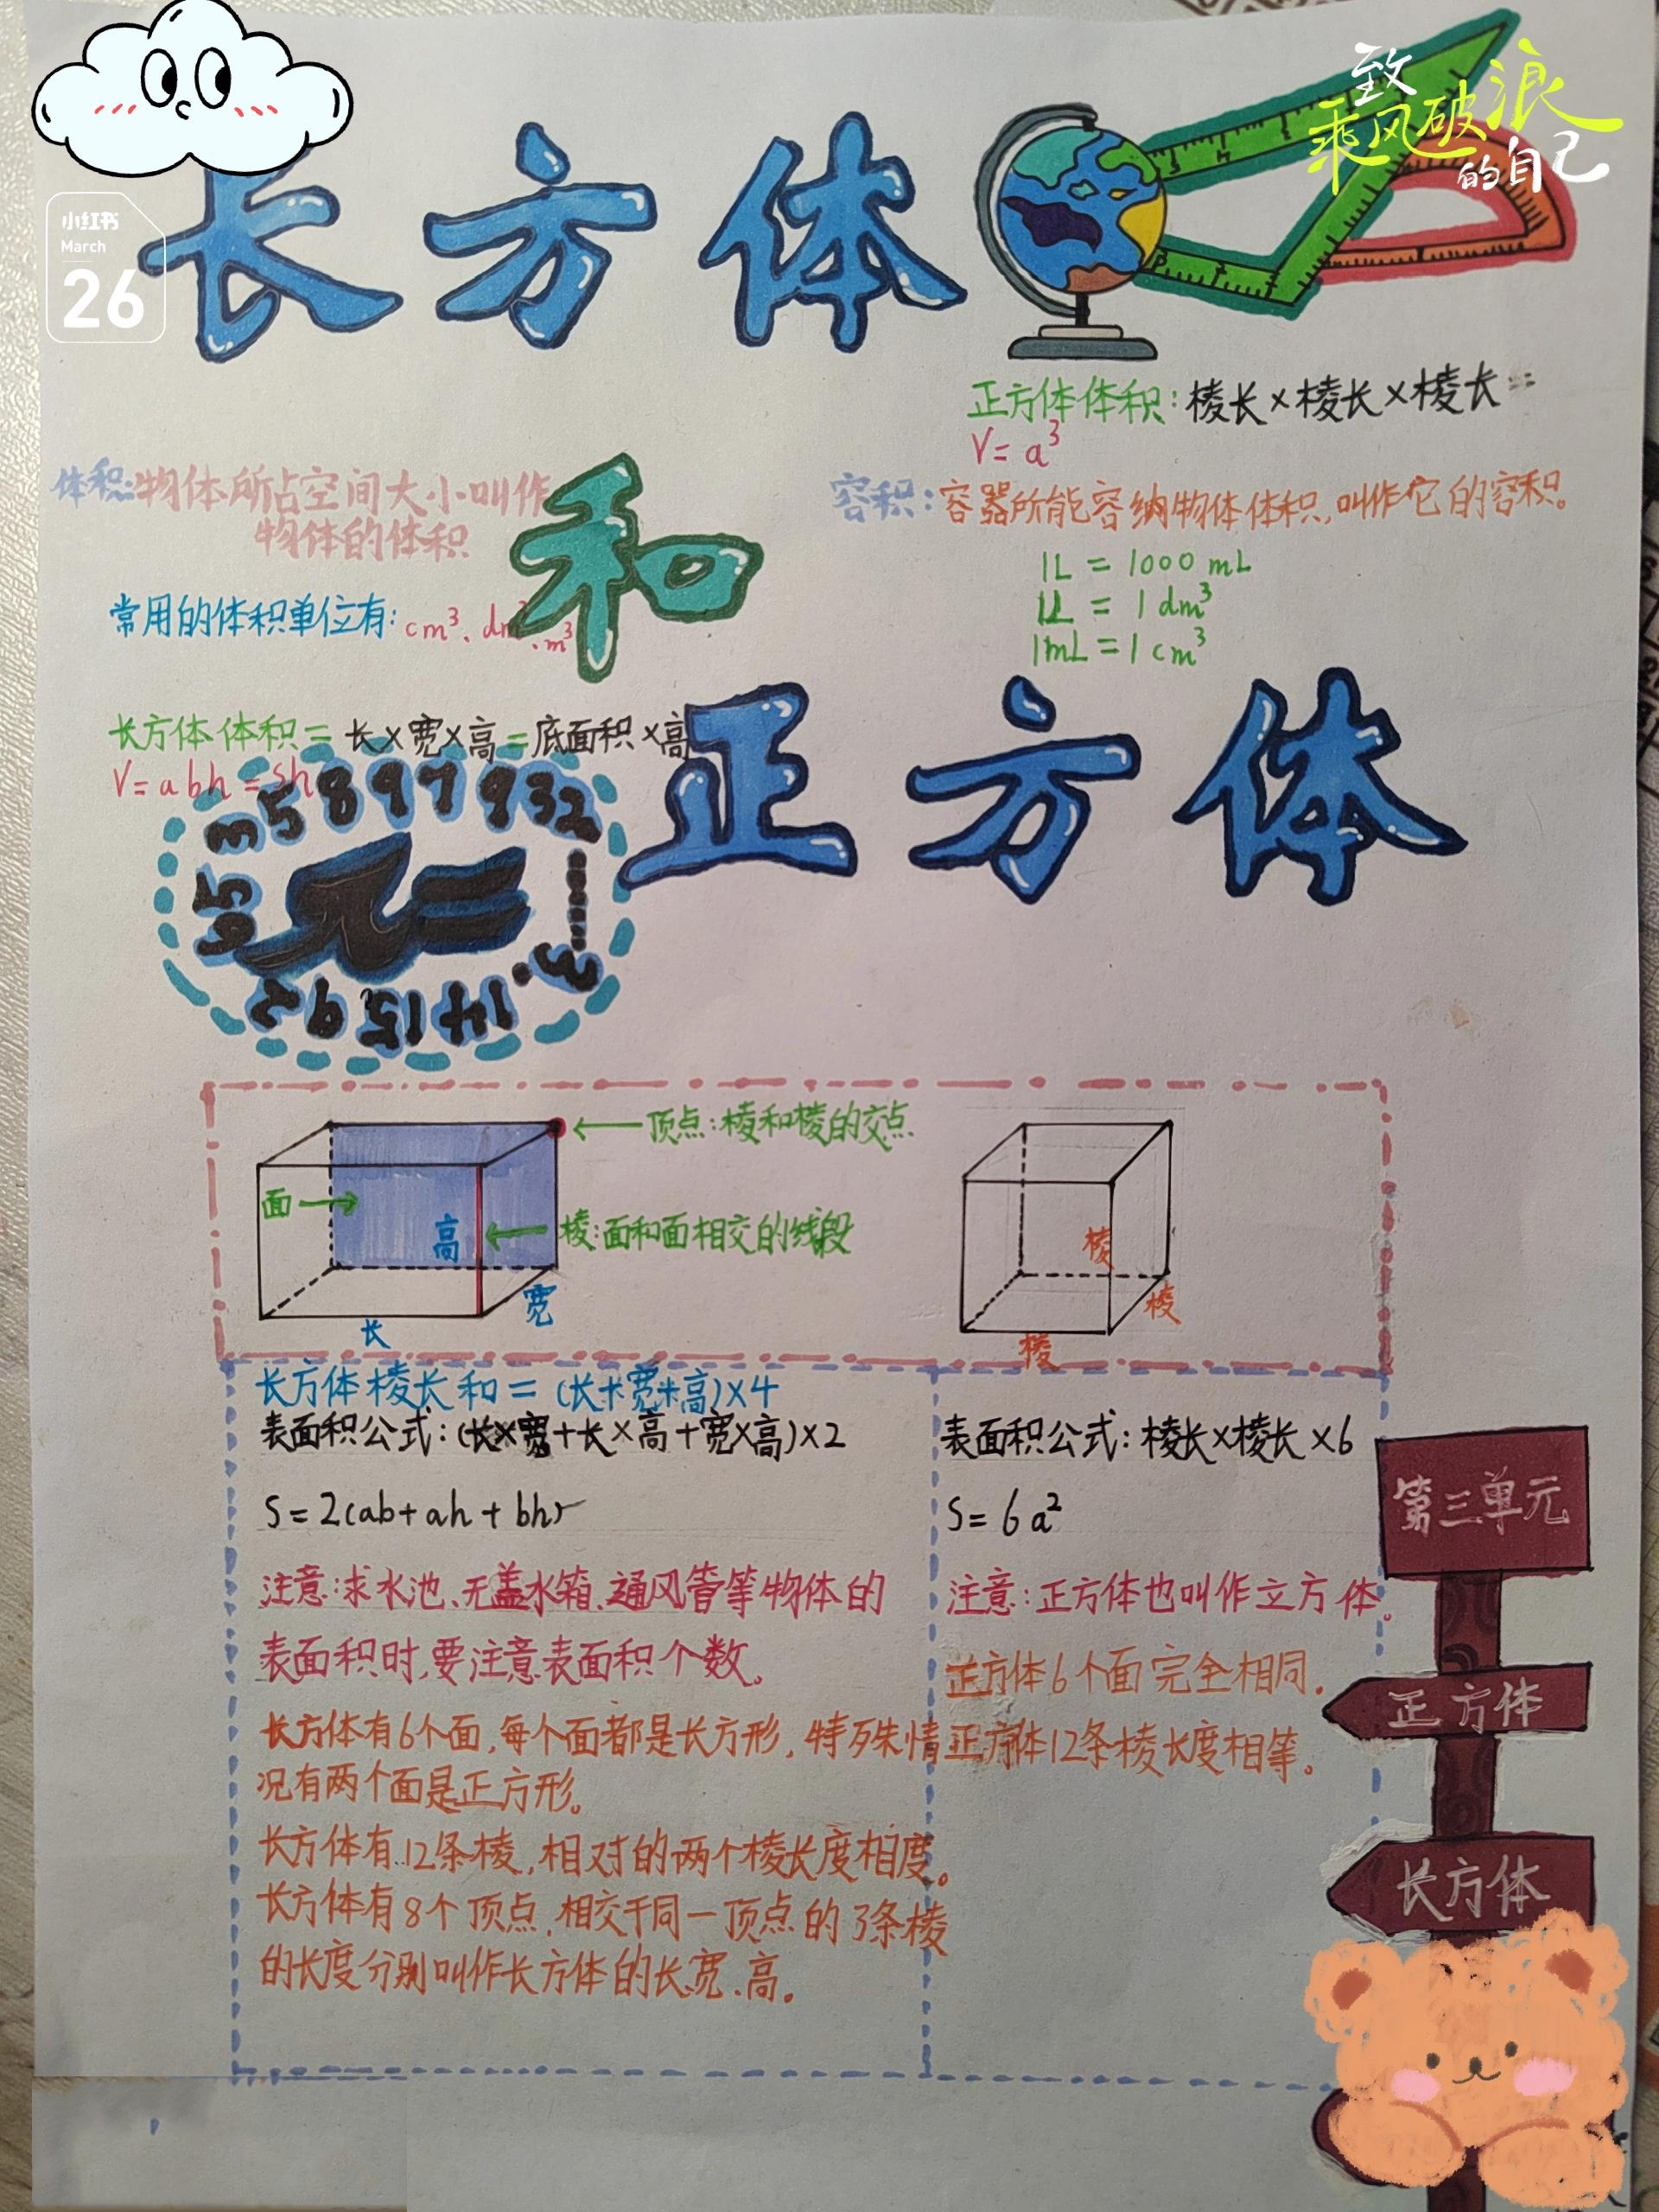 小红书
March
26
致
乘风破浪
的自己
长方体
和
正方体
正方体体积:棱长×棱长×棱长=
V=a³
体积:物体所占空间大小叫作
物体的体积
容积:容器所能容纳物体体积,叫作它的容积。
1L = 1000 mL
1L = 1 dm³
1mL = 1 cm³
常用的体积单位有:cm³、dm³、m³
长方体体积=长×宽×高=底面积×高
V=abh=Sh
π=
3.1415926535897932
顶点:棱和棱的交点
面
高
棱:面和面相交的线段
宽
长
棱
棱
棱
长方体棱长和=(长+宽+高)×4
表面积公式:(长×宽+长×高+宽×高)×2
S=2(ab+ah+bh)
注意:求水池、无盖水箱、通风管等物体的
表面积时,要注意表面积个数。
长方体有6个面,每个面都是长方形,特殊情
况有两个面是正方形。
长方体有12条棱,相对的两个棱长度相度。
长方体有8个顶点,相交于同一顶点的3条棱
的长度分别叫作长方体的长、宽、高。
表面积公式:棱长×棱长×6
S=6a²
注意:正方体也叫作立方体。
正方体6个面完全相同.
正方体12条棱长度相等。
第三单元
正方体
长方体